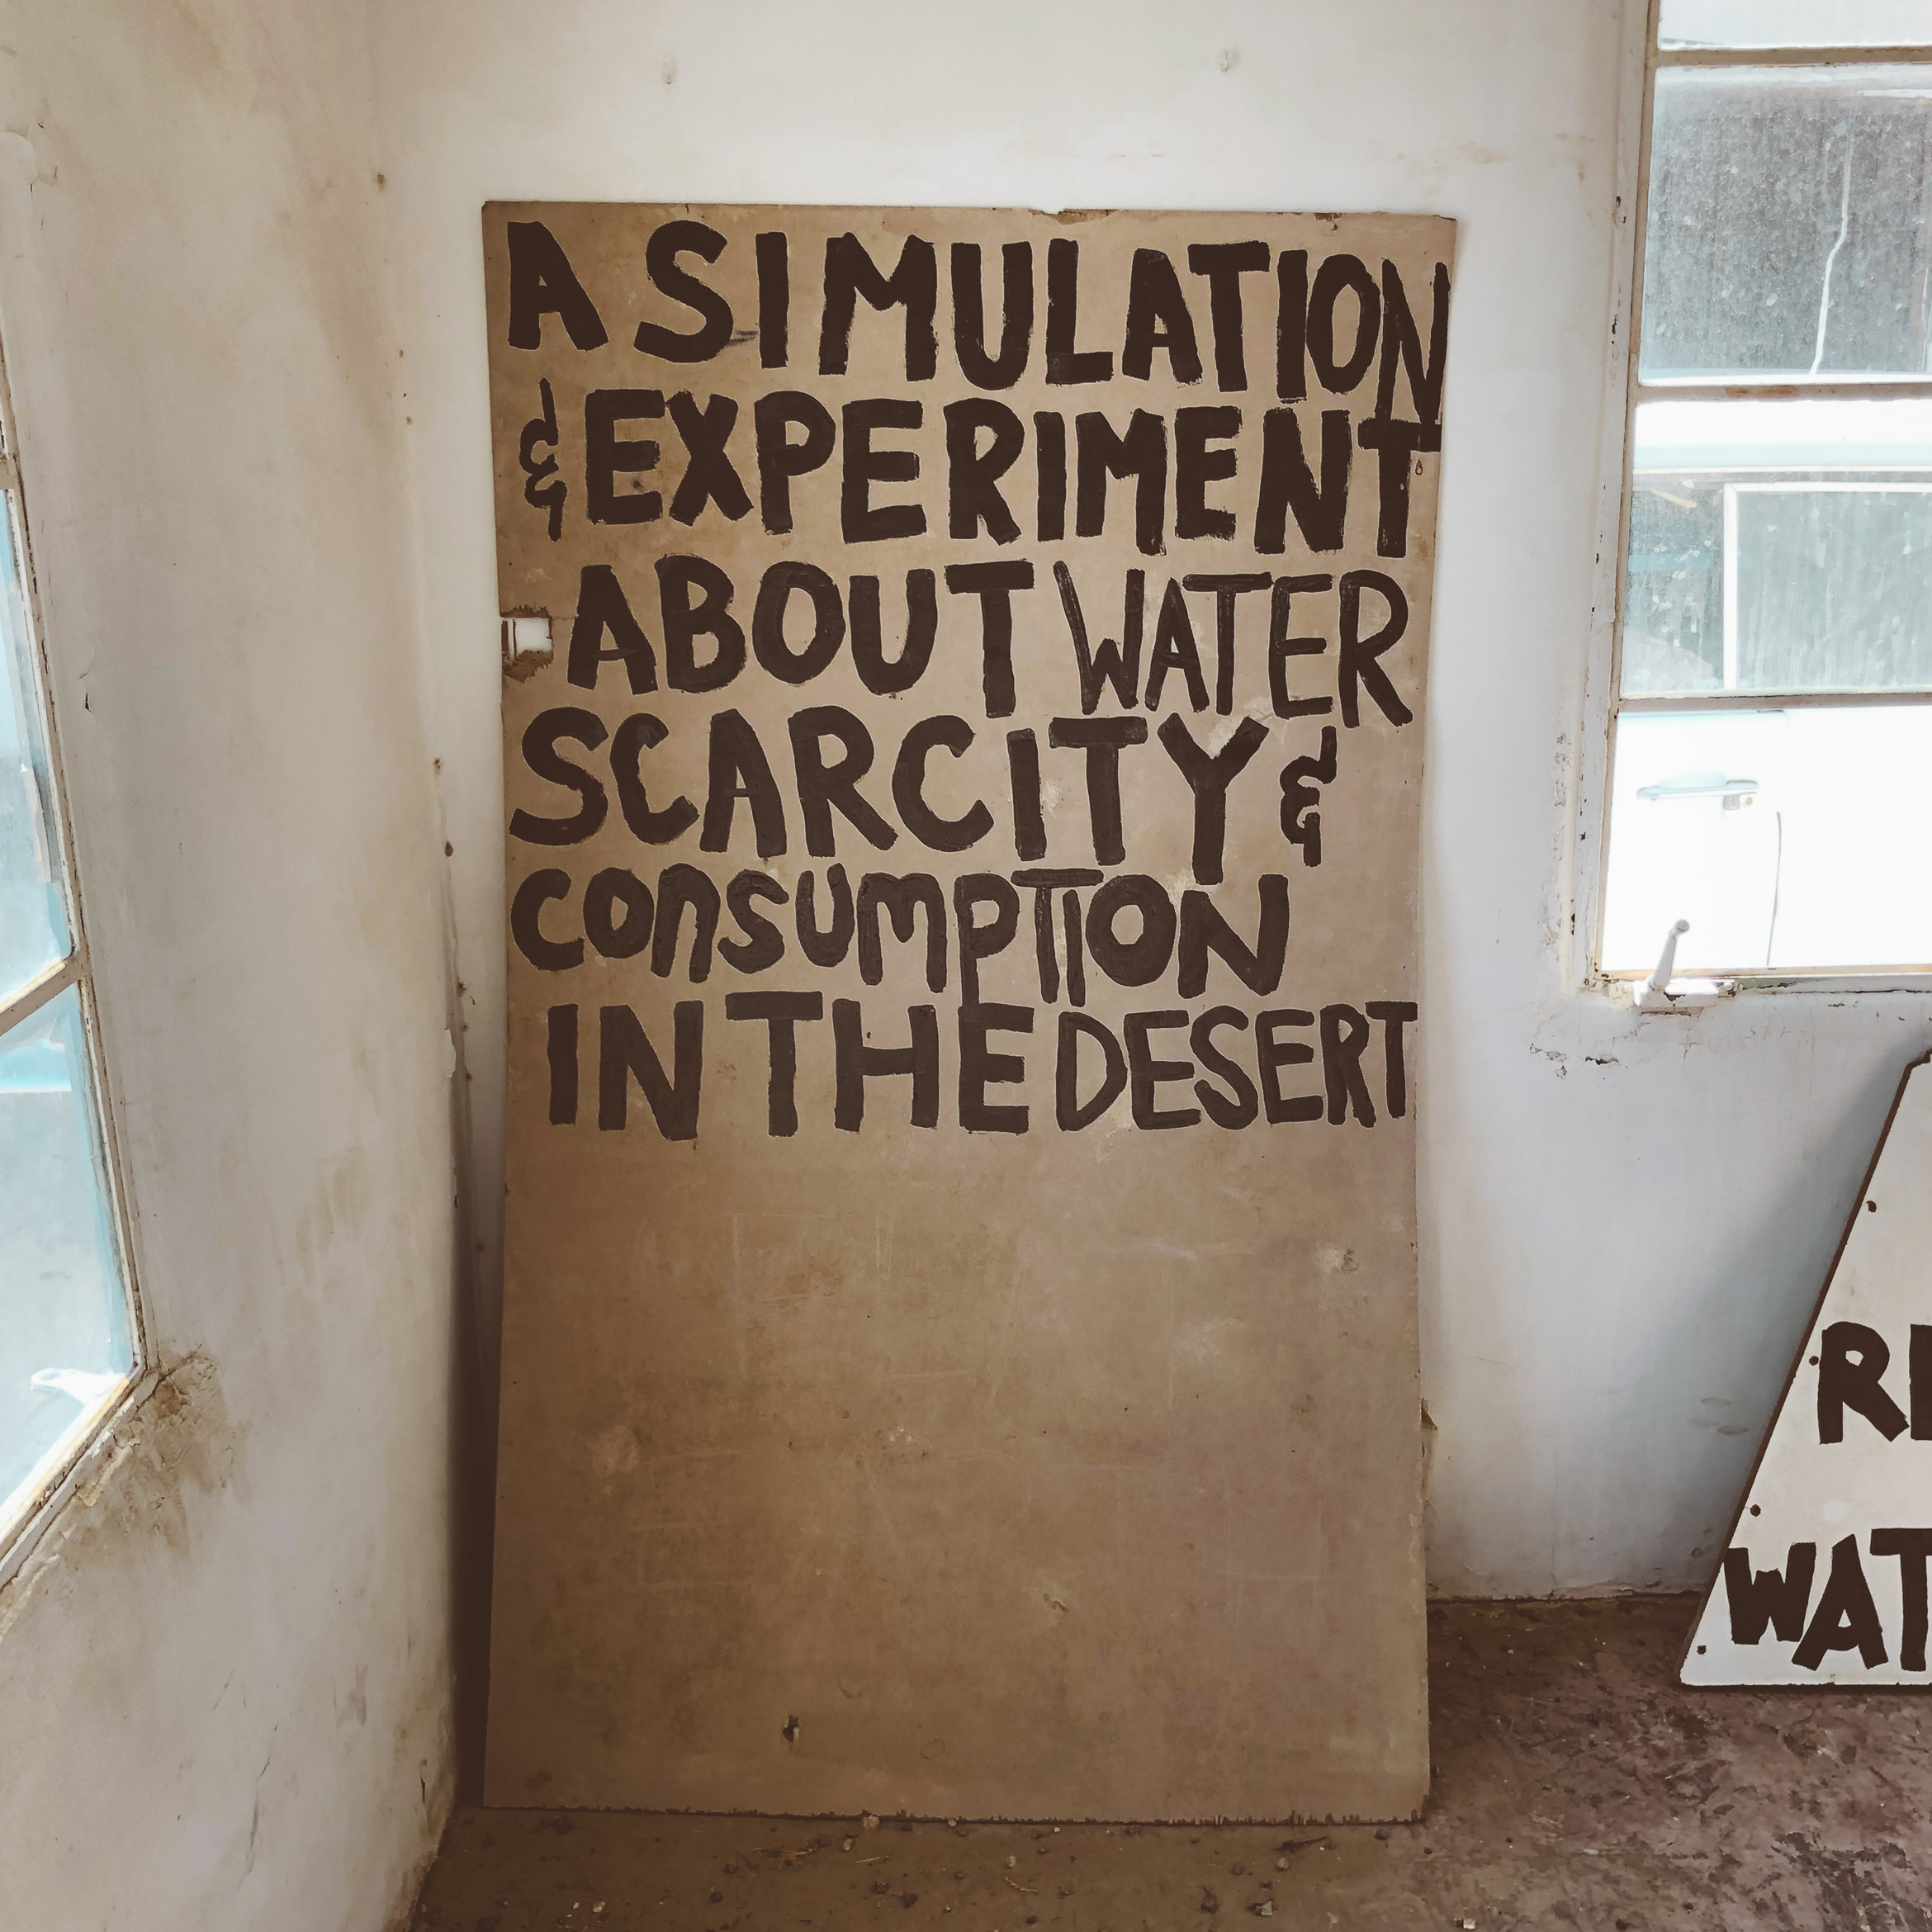 A SIMULATION
& EXPERIMENT
ABOUT WATER
SCARCITY &
CONSUMPTION
IN THE DESERT